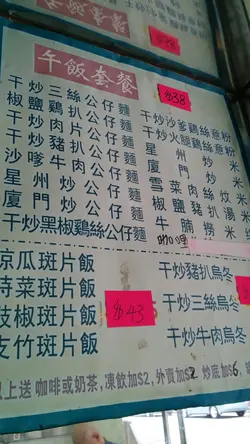 午飯套餐
$38
干炒三絲公仔麵
椒鹽鷄扒公仔麵
干炒肉片公仔麵
干炒豬扒公仔麵
沙嗲牛肉公仔麵
星州炒公仔麵
廈門炒公仔麵
干炒黑椒鷄絲公仔麵
干炒沙爹鷄絲意粉
干炒火腿鷄絲意粉
星州炒米
廈門炒米
雪菜肉絲炆米
椒鹽豬扒湯米
牛腩撈米
咖喱
涼瓜斑片飯
時菜斑片飯
豉椒斑片飯
支竹斑片飯
$43
干炒豬扒烏冬
干炒三絲烏冬
干炒牛肉烏冬
以上送 咖啡或奶茶, 凍飲加$2, 外賣加$2 炒底加$6,